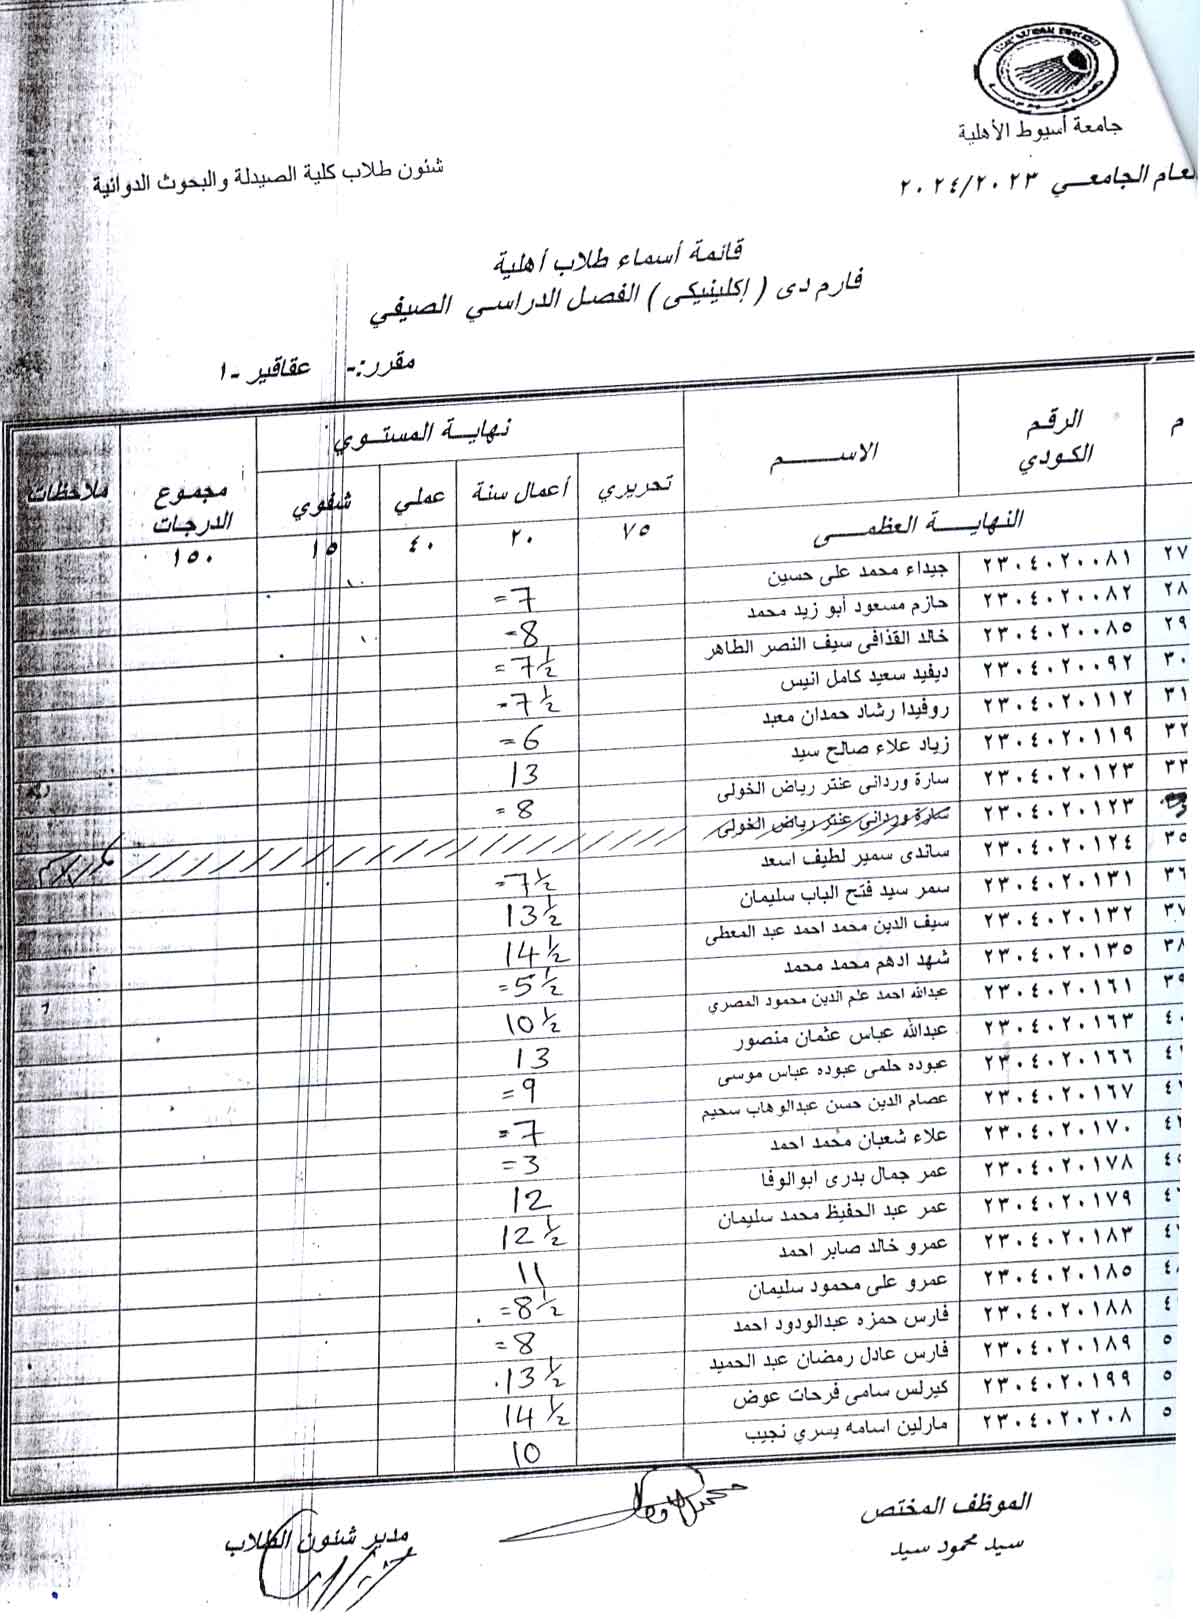 جامعة أسيوط الأهلية
العام الجامعي ٢٠٢٤/٢٠٢٣
شئون طلاب كلية الصيدلة والبحوث الدوائية
قائمة أسماء طلاب أهلية
فارم دى ( إكلينيكى ) الفصل الدراسي الصيفي
مقرر:- عقاقير -١
م الرقم الكودي الاســـم نهاية المستوي مجموع الدرجات ملاحظات
تحريري أعمال سنة عملي شفوي
النهاية العظمى ٧٥ ٢٠ ٤٠ ١٥ ١٥٠
٢٧ ٢٣٠٤٠٢٠٠٨١ جيداء محمد على حسين = 7
٢٨ ٢٣٠٤٠٢٠٠٨٢ حازم مسعود أبو زيد محمد = 8
٢٩ ٢٣٠٤٠٢٠٠٨٥ خالد القذافى سيف النصر الطاهر = 7 ½
٣٠ ٢٣٠٤٠٢٠٠٩٢ ديفيد سعيد كامل انيس = 7 ½
٣١ ٢٣٠٤٠٢٠١١٢ روفيدا رشاد حمدان معبد = 6
٣٢ ٢٣٠٤٠٢٠١١٩ زياد علاء صالح سيد 13
٣٣ ٢٣٠٤٠٢٠١٢٣ سارة وردانى عنتر رياض الخولى = 8
٢٣٠٤٠٢٠١٢٣ سارة وردانى عنتر رياض الخولى
٣٥ ٢٣٠٤٠٢٠١٢٤ ساندى سمير لطيف اسعد = 7 ½
٣٦ ٢٣٠٤٠٢٠١٣١ سمر سيد فتح الباب سليمان 13 ½
٣٧ ٢٣٠٤٠٢٠١٣٢ سيف الدين محمد احمد عبد المعطى 14 ½
٣٨ ٢٣٠٤٠٢٠١٣٥ شهد ادهم محمد محمد = 5 ½
٣٩ ٢٣٠٤٠٢٠١٦١ عبدالله احمد علم الدين محمود المصري 10 ½
٤٠ ٢٣٠٤٠٢٠١٦٣ عبدالله عباس عثمان منصور 13
٢٣٠٤٠٢٠١٦٦ عبوده حلمى عبوده عباس موسى = 9
٢٣٠٤٠٢٠١٦٧ عصام الدين حسن عبدالوهاب سحيم = 7
٢٣٠٤٠٢٠١٧٠ علاء شعبان محمد احمد = 3
٢٣٠٤٠٢٠١٧٨ عمر جمال بدرى ابوالوفا 12
٢٣٠٤٠٢٠١٧٩ عمر عبد الحفيظ محمد سليمان 12 ½
٢٣٠٤٠٢٠١٨٣ عمرو خالد صابر احمد 11
٢٣٠٤٠٢٠١٨٥ عمرو على محمود سليمان = 8 ½
٢٣٠٤٠٢٠١٨٨ فارس حمزه عبدالودود احمد = 8
٢٣٠٤٠٢٠١٨٩ فارس عادل رمضان عبد الحميد 13 ½
٢٣٠٤٠٢٠١٩٩ كيرلس سامى فرحات عوض 14 ½
٢٣٠٤٠٢٠٢٠٨ مارلين اسامه يسري نجيب 10
الموظف المختص
سيد محمود سيد
مدير شئون الطلاب